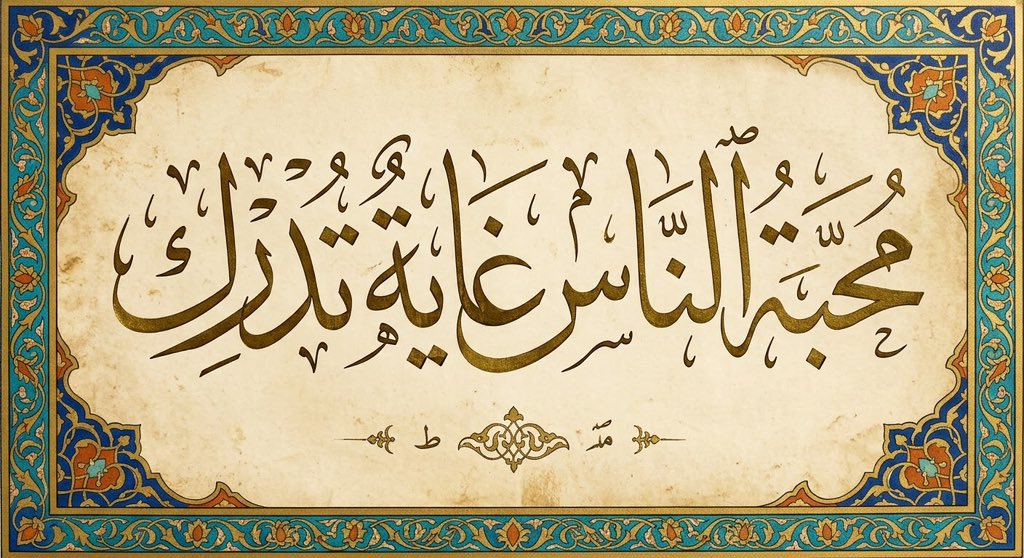 مُحَبَّةُ ٱلنَّاس غَايَةٌ تُدْرَِك